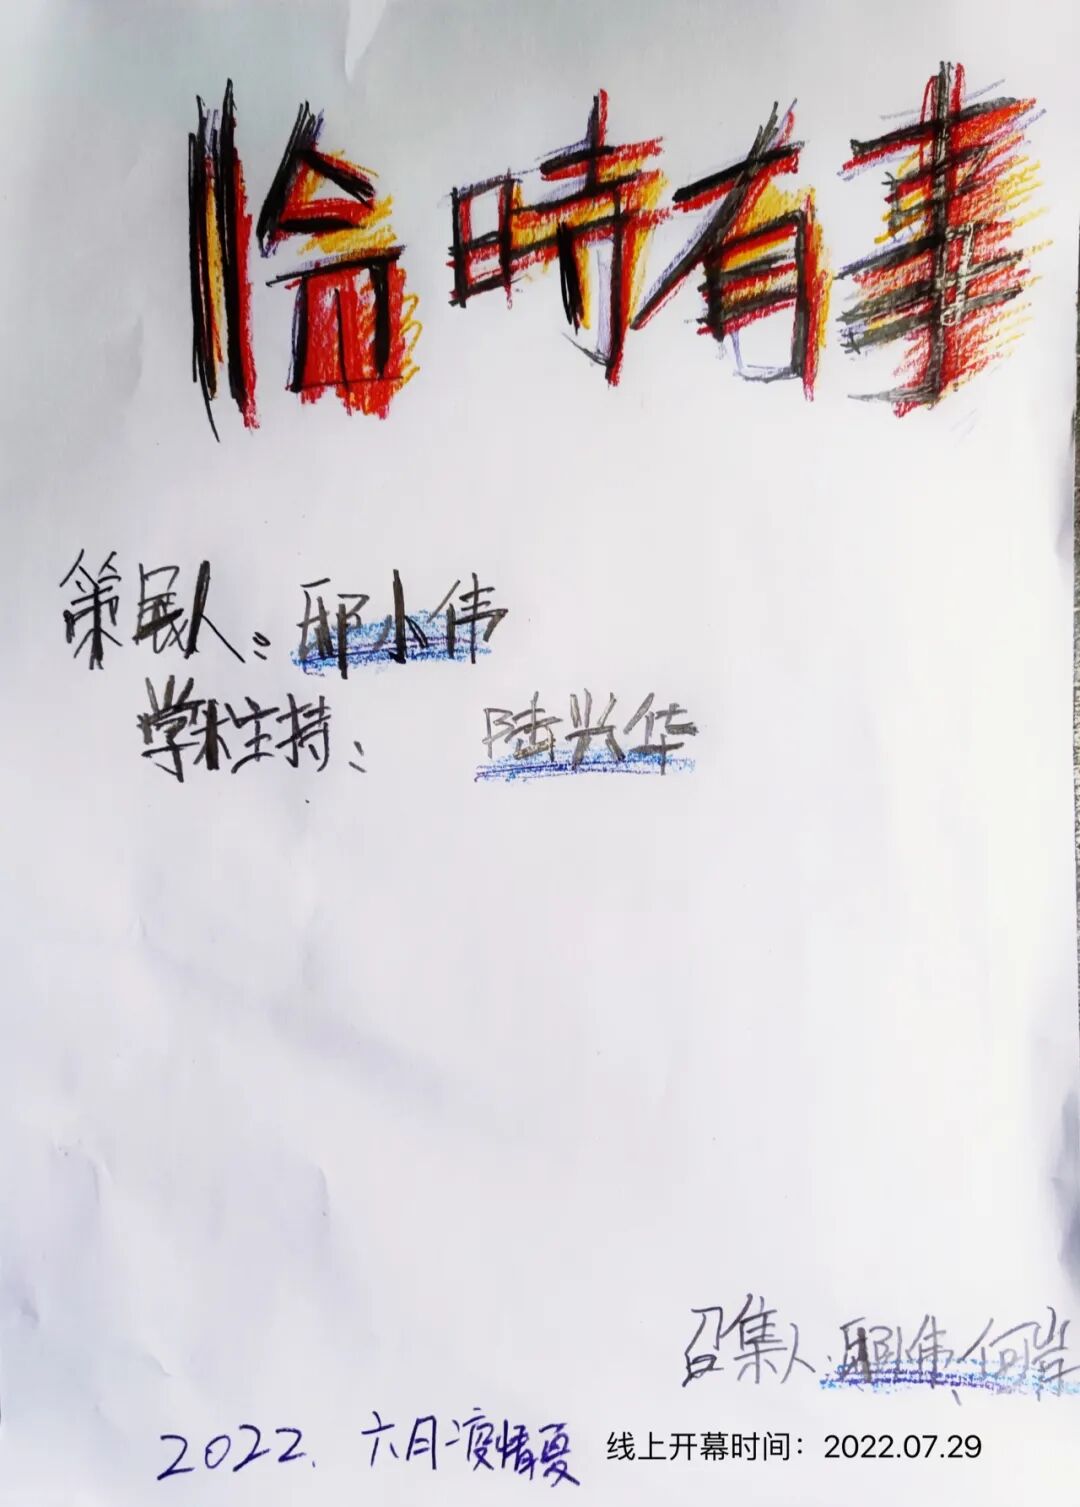 恰時有事
策展人：小伟
学术主持：陆兴华
召集人：伟、何
2022. 六月疫情夏 线上开幕时间：2022.07.29